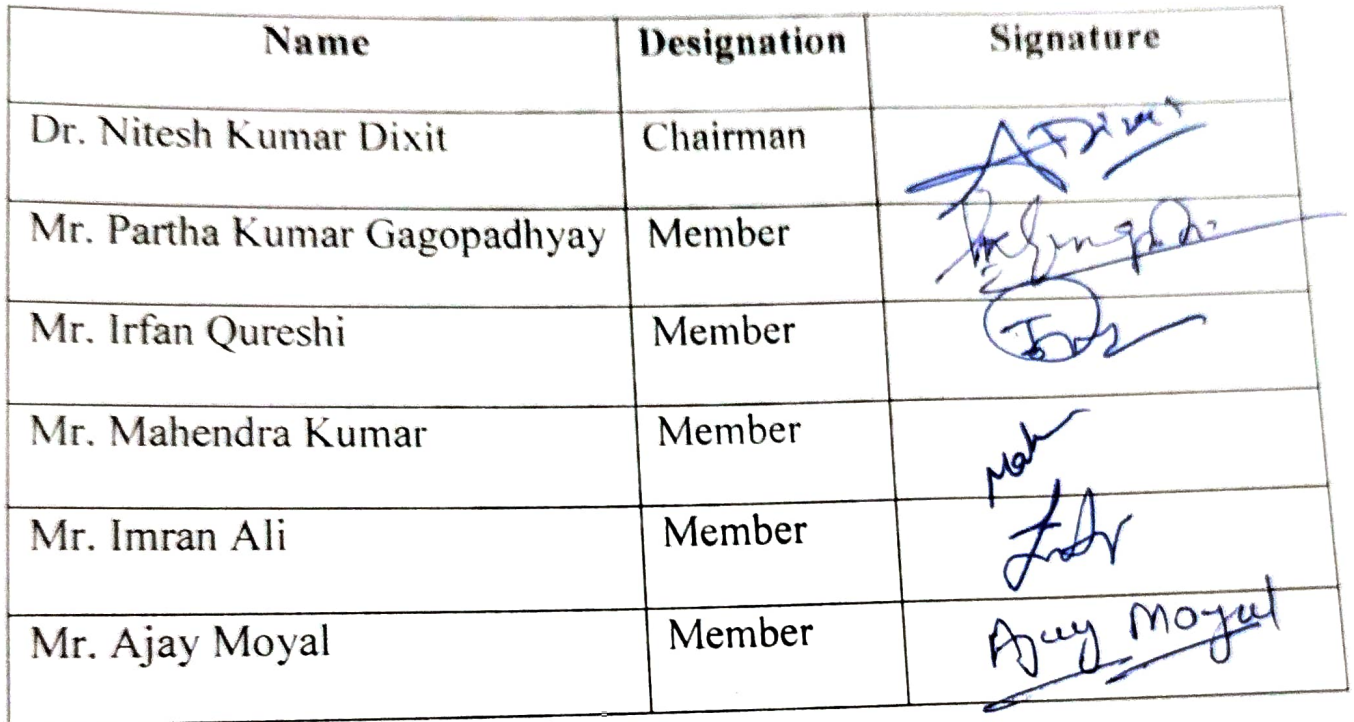 Name Designation Signature
Dr. Nitesh Kumar Dixit Chairman
Mr. Partha Kumar Gagopadhyay Member
Mr. Irfan Qureshi Member
Mr. Mahendra Kumar Member
Mr. Imran Ali Member
Mr. Ajay Moyal Member Ajay Moyal